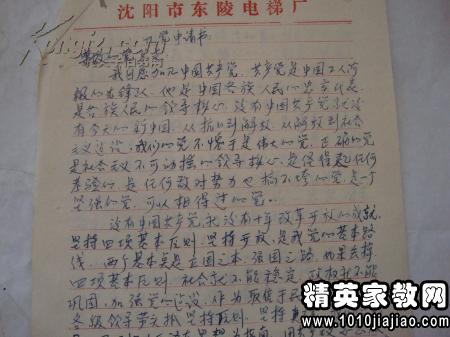 沈阳市东陵电梯厂
入党申请书
尊敬的党
我自愿加入中国共产党，共产党是中国工人阶
级的先锋队，他是中国各族人民的忠实代表，
是各族人民的领导核心，没有中国共产党就没
有今天的新中国，从抗日到解放，从解放到社会
主义建设，我们的党不愧于是伟大的党，正确的党
是社会主义不可动摇的领导核心，是经得起任何
考验的，是任何敌对势力也搞不垮的党，是一个
坚强的党，可以相信过的党。
没有中国共产党，就没有十年改革开放的成就，
坚持四项基本原则，坚持开放，是我党的基本路
线，两个基本点是立国之本，强国之路，如果丢掉
四项基本原则，社会就不能稳定，政权就不能
巩固，加强党的建设，作为
各级领导带头抓坚持原则，坚持
精英家教网
www.1010jiajiao.com